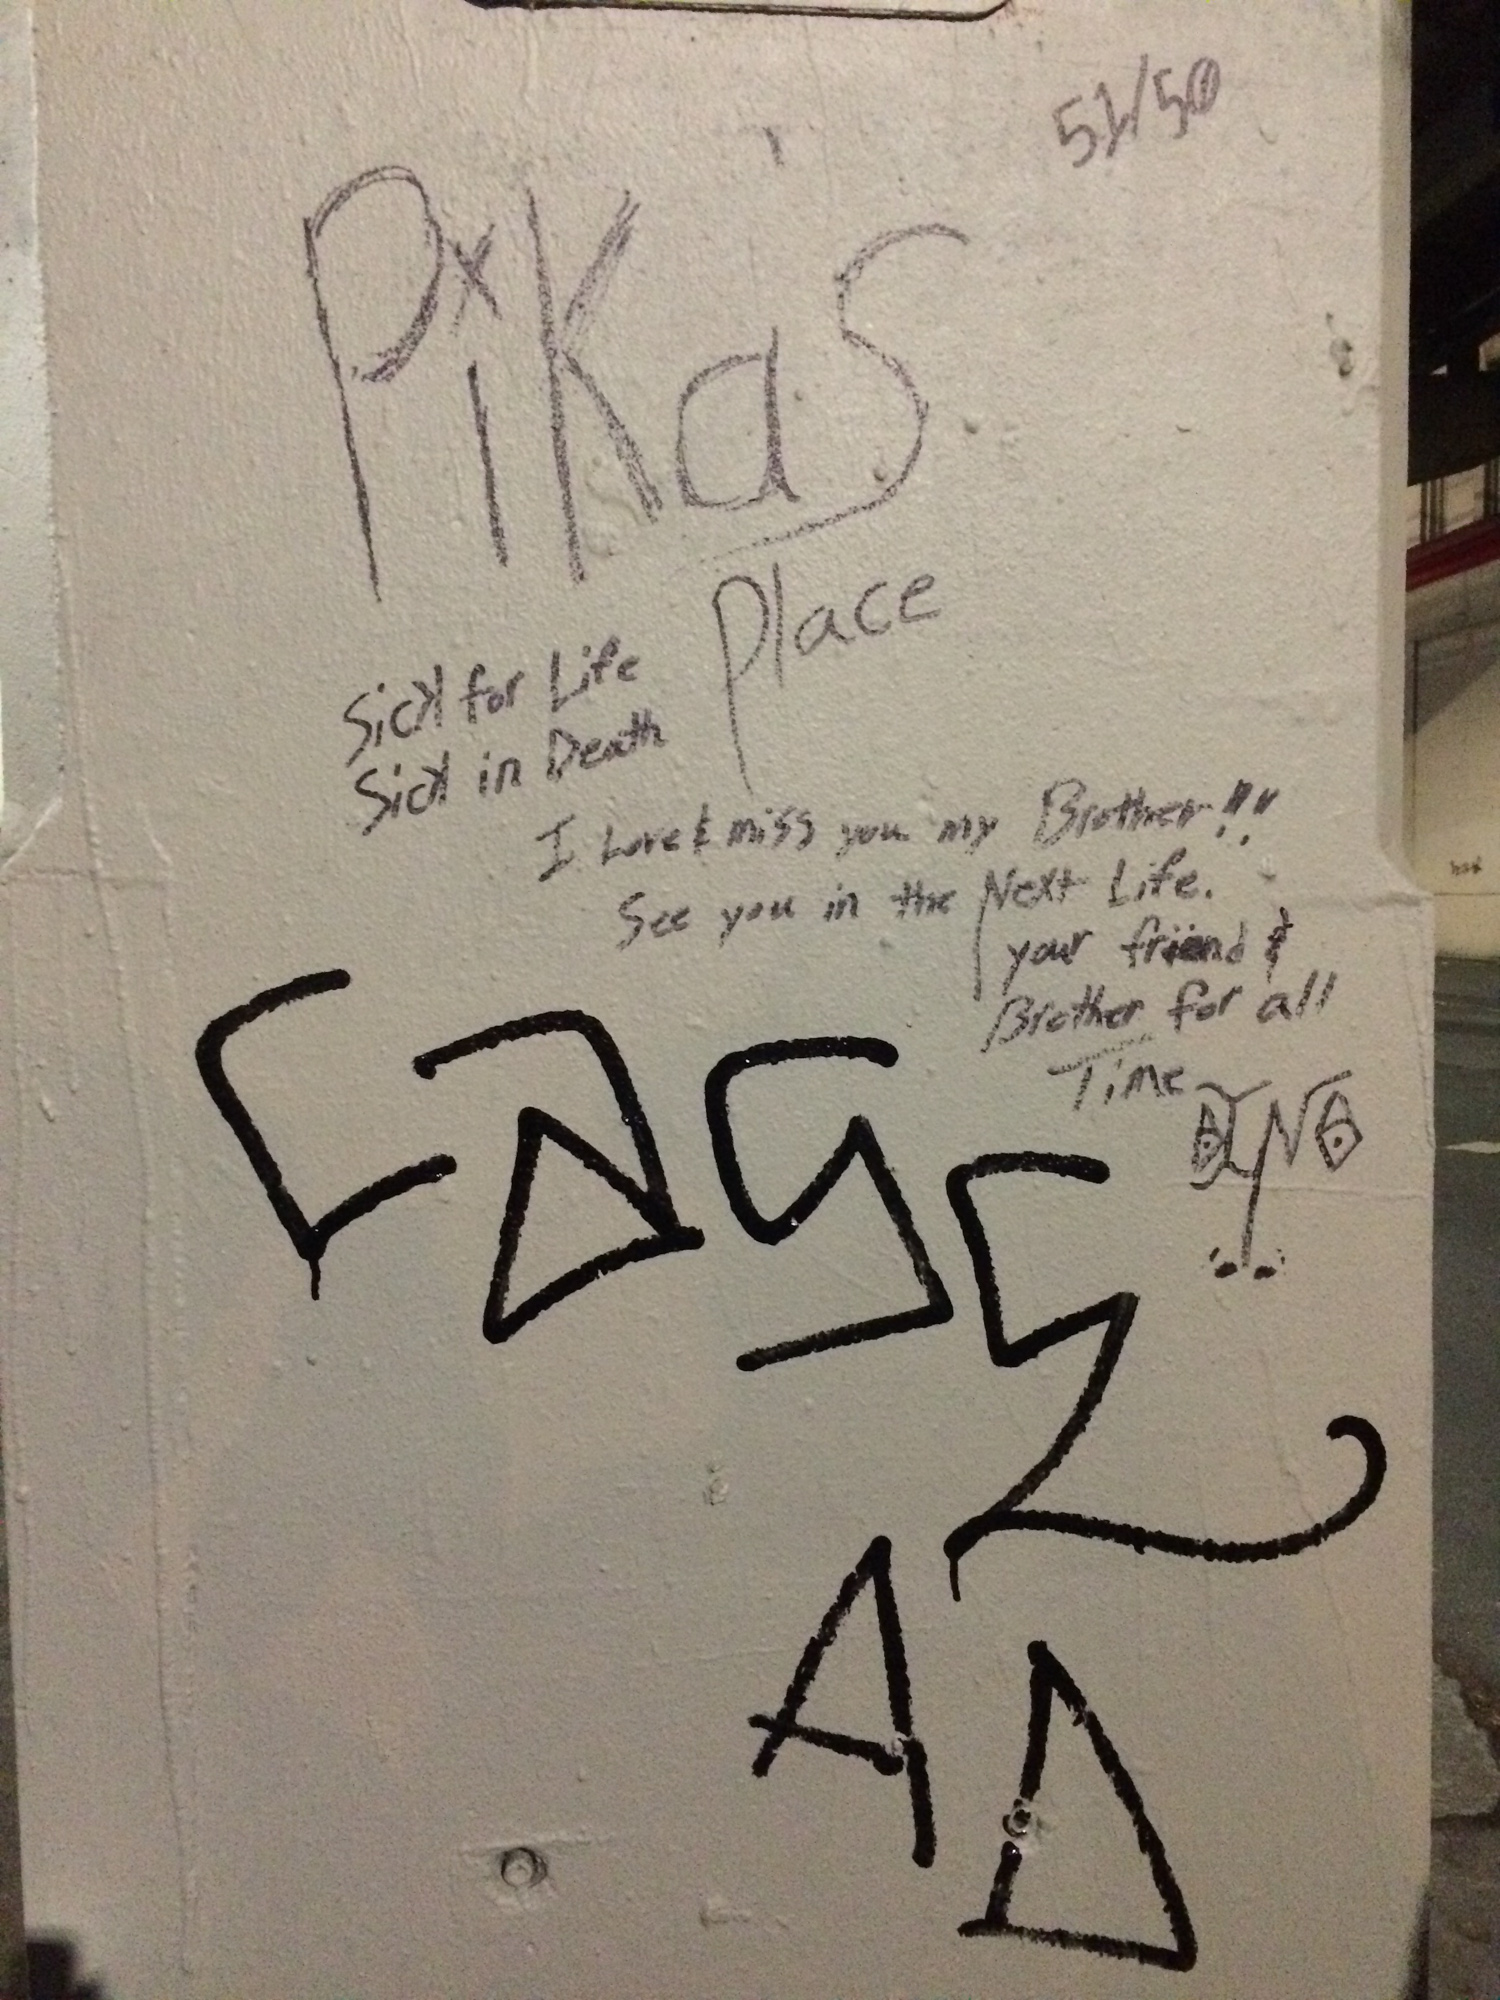 51/50
PiKa's
Place
Sick for Life
Sick in Death
I Love & miss you my Brother!!
See you in the Next Life.
your friend &
Brother for all
Time
AD